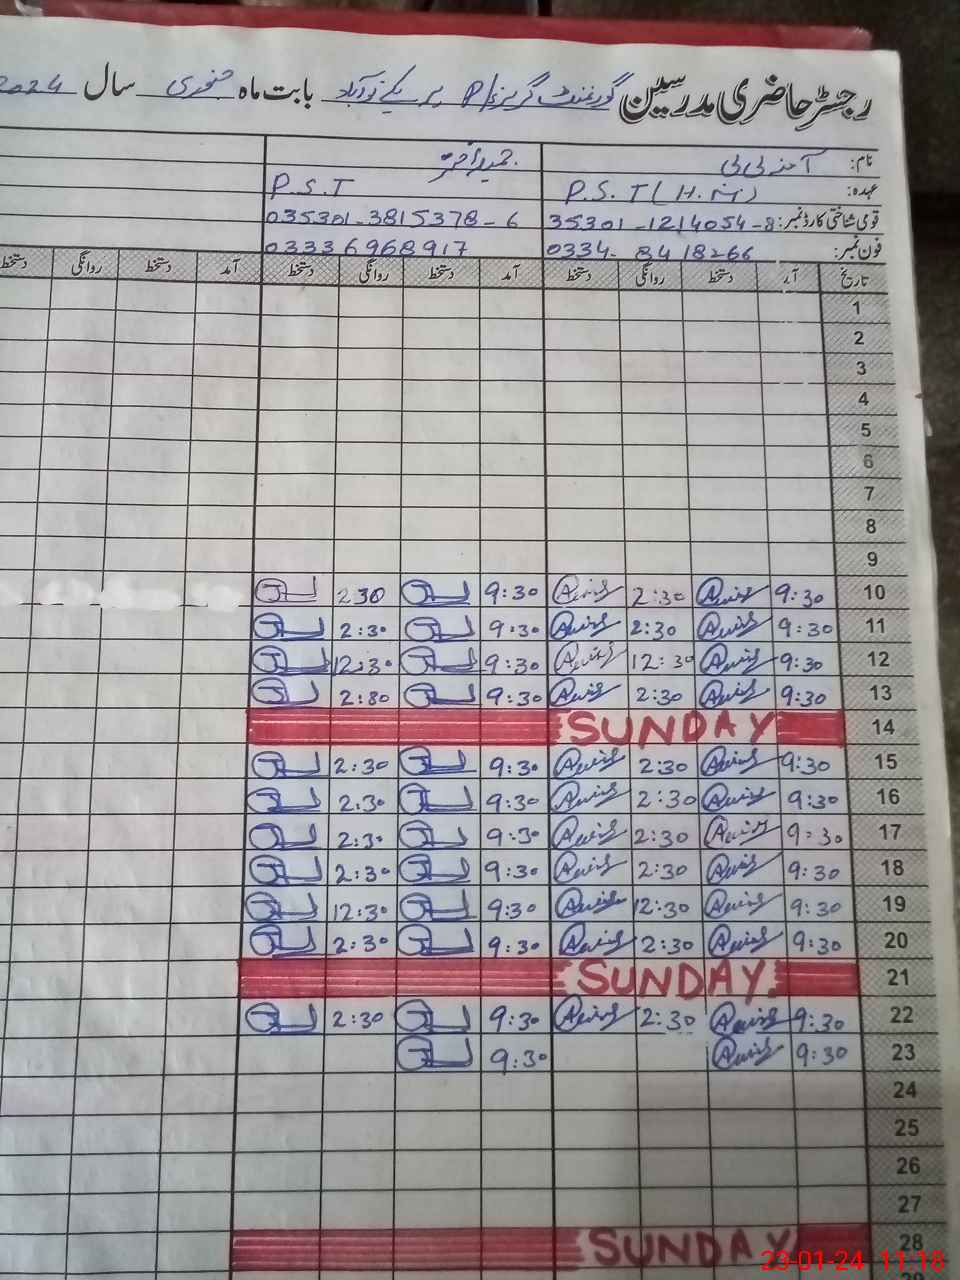 رجسٹر حاضری مدرسین گورنمنٹ گرلز P/ بابت ماہ جنوری سال 2024
نام: آمنہ بی بی
عہدہ: P.S.T (H.M) P.S.T
قومی شناختی کارڈ نمبر: 35301-1214054-8 035301-3815378-6
فون نمبر: 0334-8418266 03336968917
تاریخ آمد دستخط روانگی دستخط آمد دستخط روانگی دستخط آمد دستخط روانگی دستخط
1
2
3
4
5
6
7
8
9
2:30 9:30 2:30 9:30 10
2:30 9:30 2:30 9:30 11
12:30 9:30 12:30 9:30 12
2:80 9:30 2:30 9:30 13
SUNDAY 14
2:30 9:30 2:30 9:30 15
2:30 9:30 2:30 9:30 16
2:30 9:30 2:30 9:30 17
2:30 9:30 2:30 9:30 18
12:30 9:30 12:30 9:30 19
2:30 9:30 2:30 9:30 20
SUNDAY 21
2:30 9:30 2:30 9:30 22
9:30 9:30 23
24
25
26
27
SUNDAY 28
23-01-24 11:18